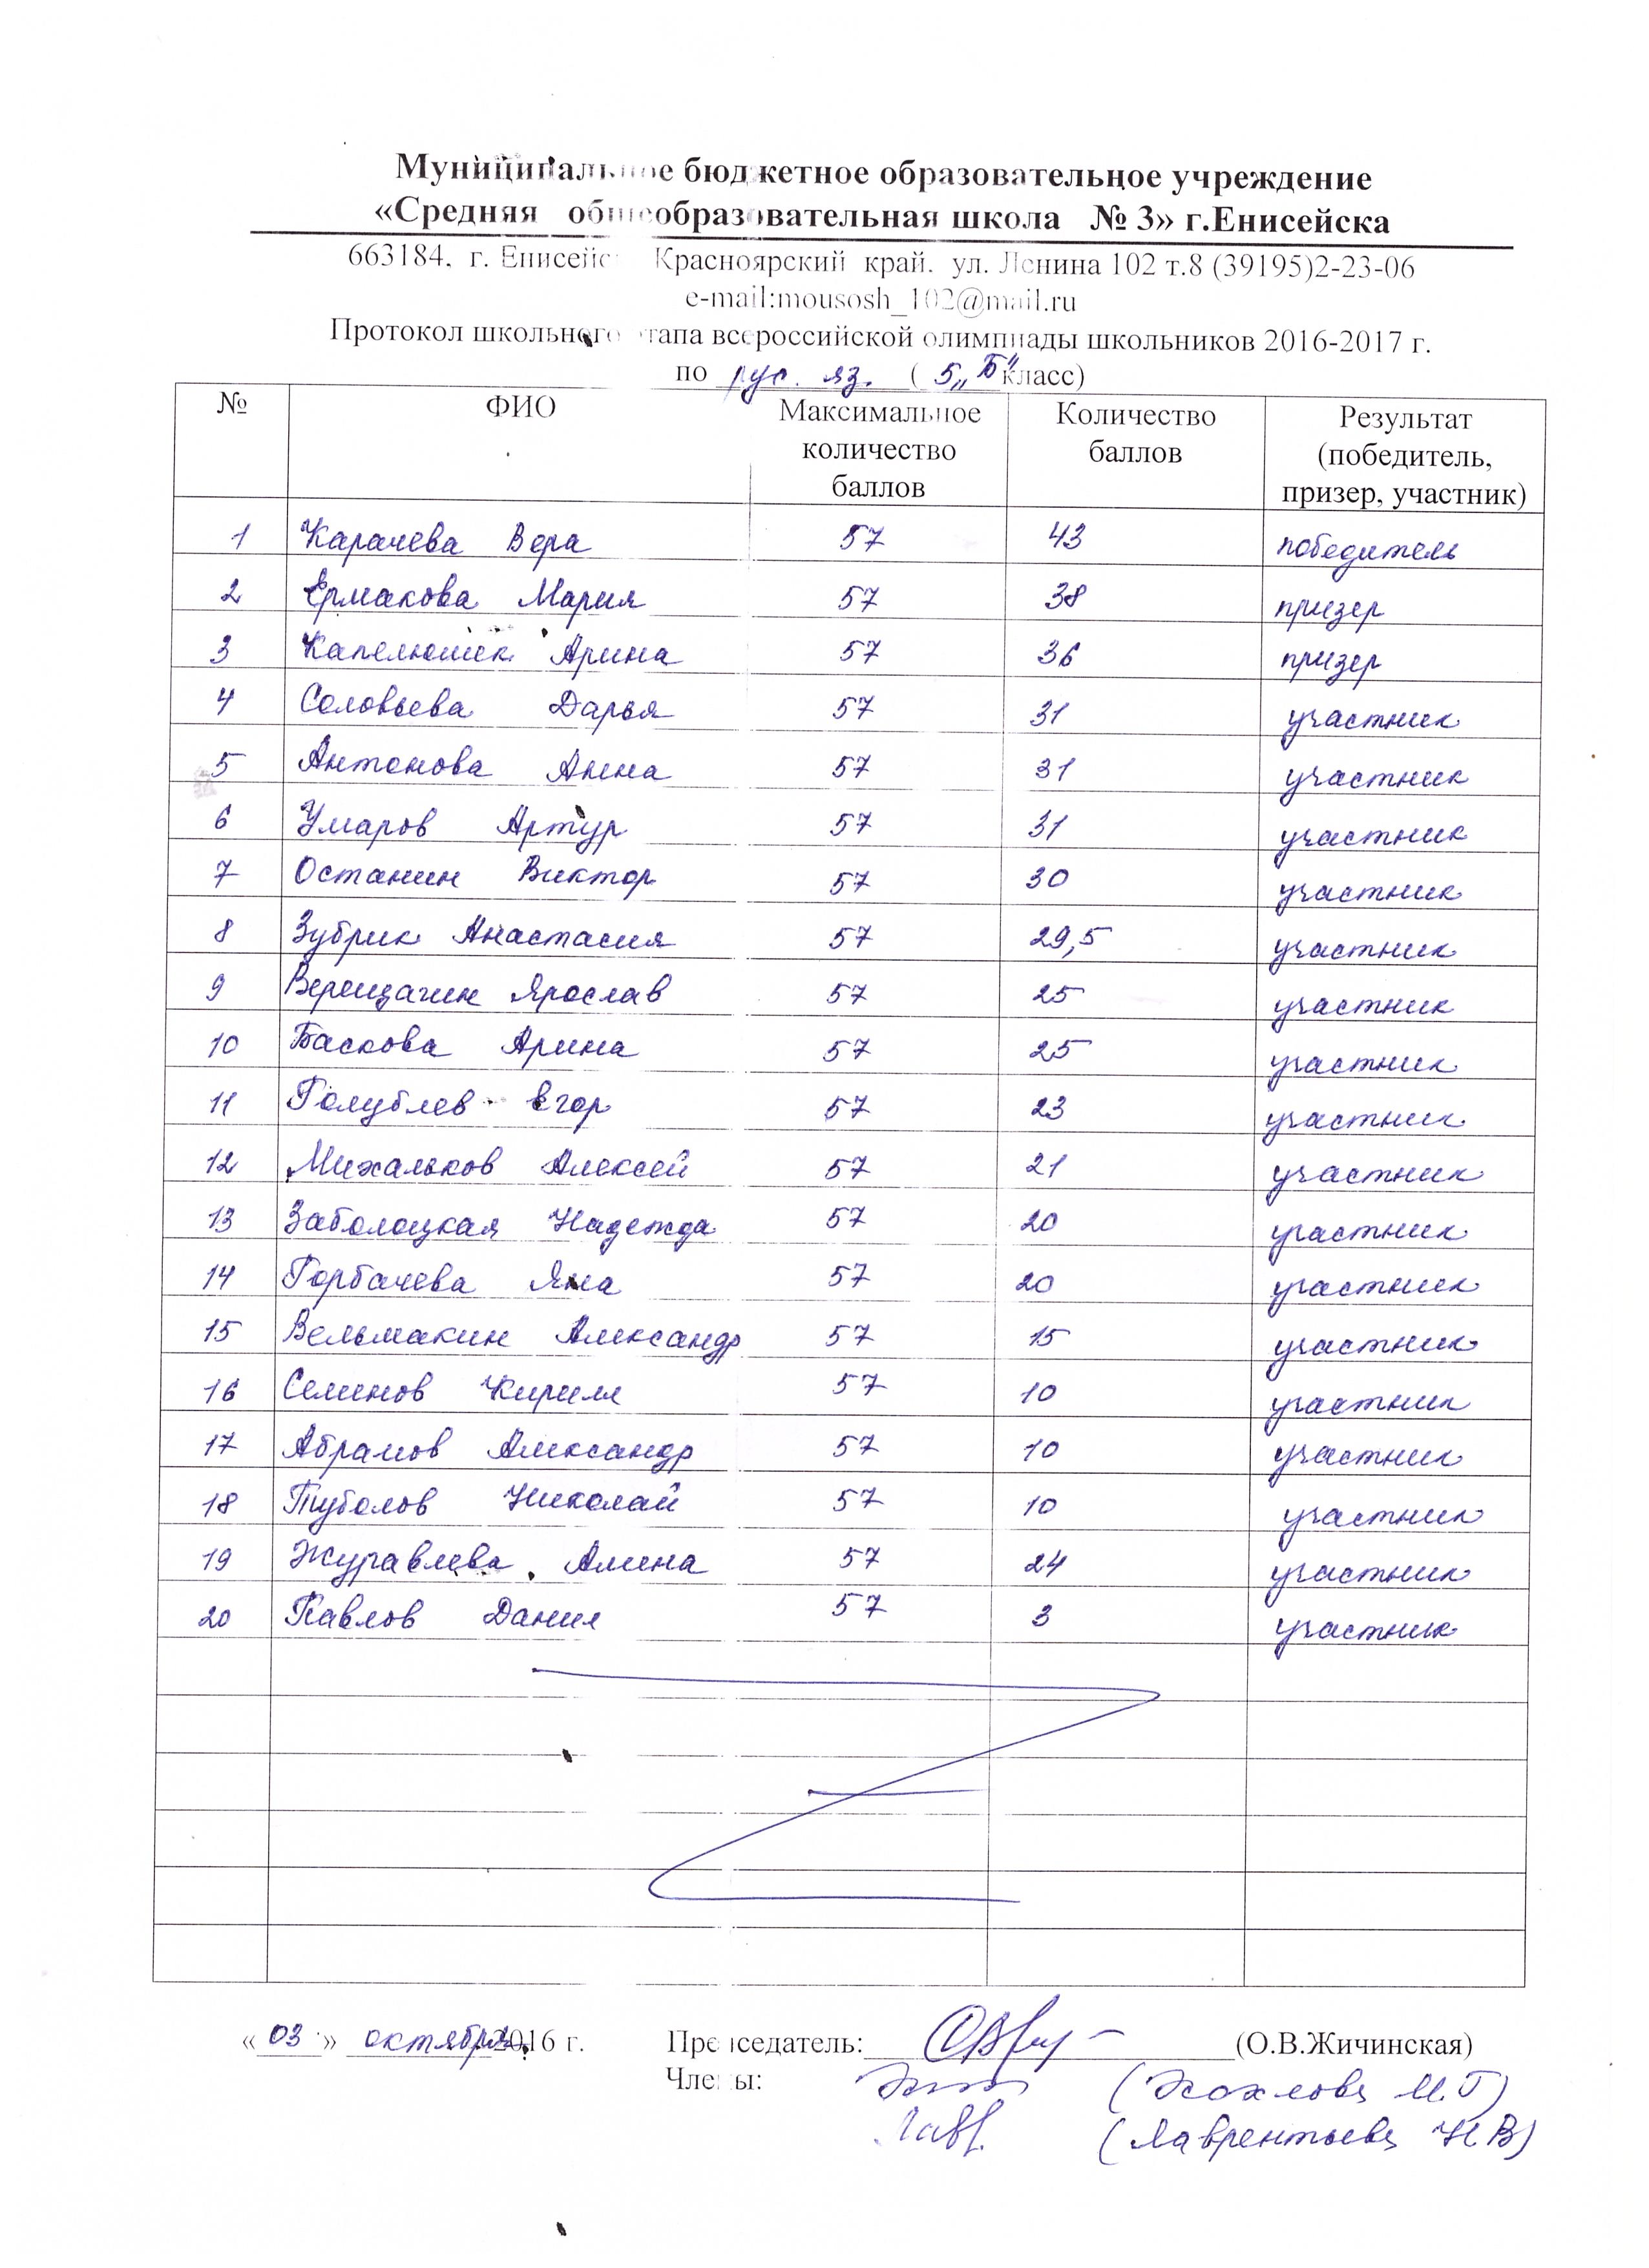 Муниципальное бюджетное образовательное учреждение
«Средняя общеобразовательная школа № 3» г.Енисейска
663184, г. Енисейск Красноярский край, ул. Ленина 102 т.8 (39195)2-23-06
e-mail:mousosh_102@mail.ru
Протокол школьного этапа всероссийской олимпиады школьников 2016-2017 г.
по рус. яз. ( 5„Б" класс)
№ ФИО Максимальное количество баллов Количество баллов Результат (победитель, призер, участник)
1 Карачева Вера 57 43 победитель
2 Ермакова Мария 57 38 призер
3 Капелюшек Арина 57 36 призер
4 Соловьева Дарья 57 31 участник
5 Антонова Анна 57 31 участник
6 Умаров Артур 57 31 участник
7 Останин Виктор 57 30 участник
8 Зубрик Анастасия 57 29,5 участник
9 Верещагин Ярослав 57 25 участник
10 Баскова Арина 57 25 участник
11 Голублев Егор 57 23 участник
12 Михальков Алексей 57 21 участник
13 Заболоцкая Надежда 57 20 участник
14 Горбачева Яна 57 20 участник
15 Вельмакин Александр 57 15 участник
16 Семенов Кирилл 57 10 участник
17 Абрамов Александр 57 10 участник
18 Туболов Николай 57 10 участник
19 Журавлева Алина 57 24 участник
20 Павлов Данил 57 3 участник
«03» октября 2016 г. Председатель: (О.В.Жичинская)
Члены: (Хохлова М.Г)
(Лаврентьева Н В)